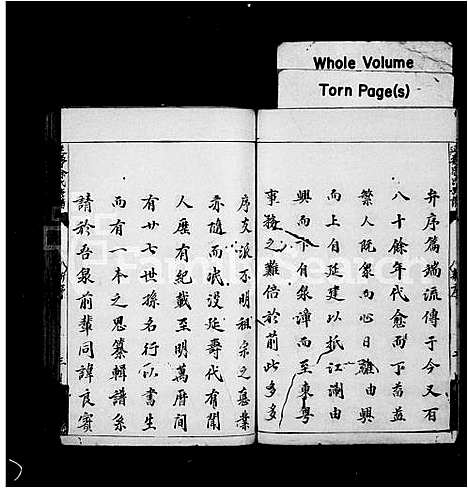 Whole Volume
Torn Page(s)
弁序屬端流傳于今又有
八十餘年代愈而丁葢益
繁人既衆而心日離由興
而上自延建以抵江澗由
興而下自泉漳而至東粵
事務之難倍於前此多多
序支派不明祖宗之基業
亦隨而泯沒延哥代有聞
人歷有紀載至明萬曆間
有廿七世孫名行以書生
而有一本之思纂輯譜系
請於吾泉前輩同諱良賓
FamilySearch